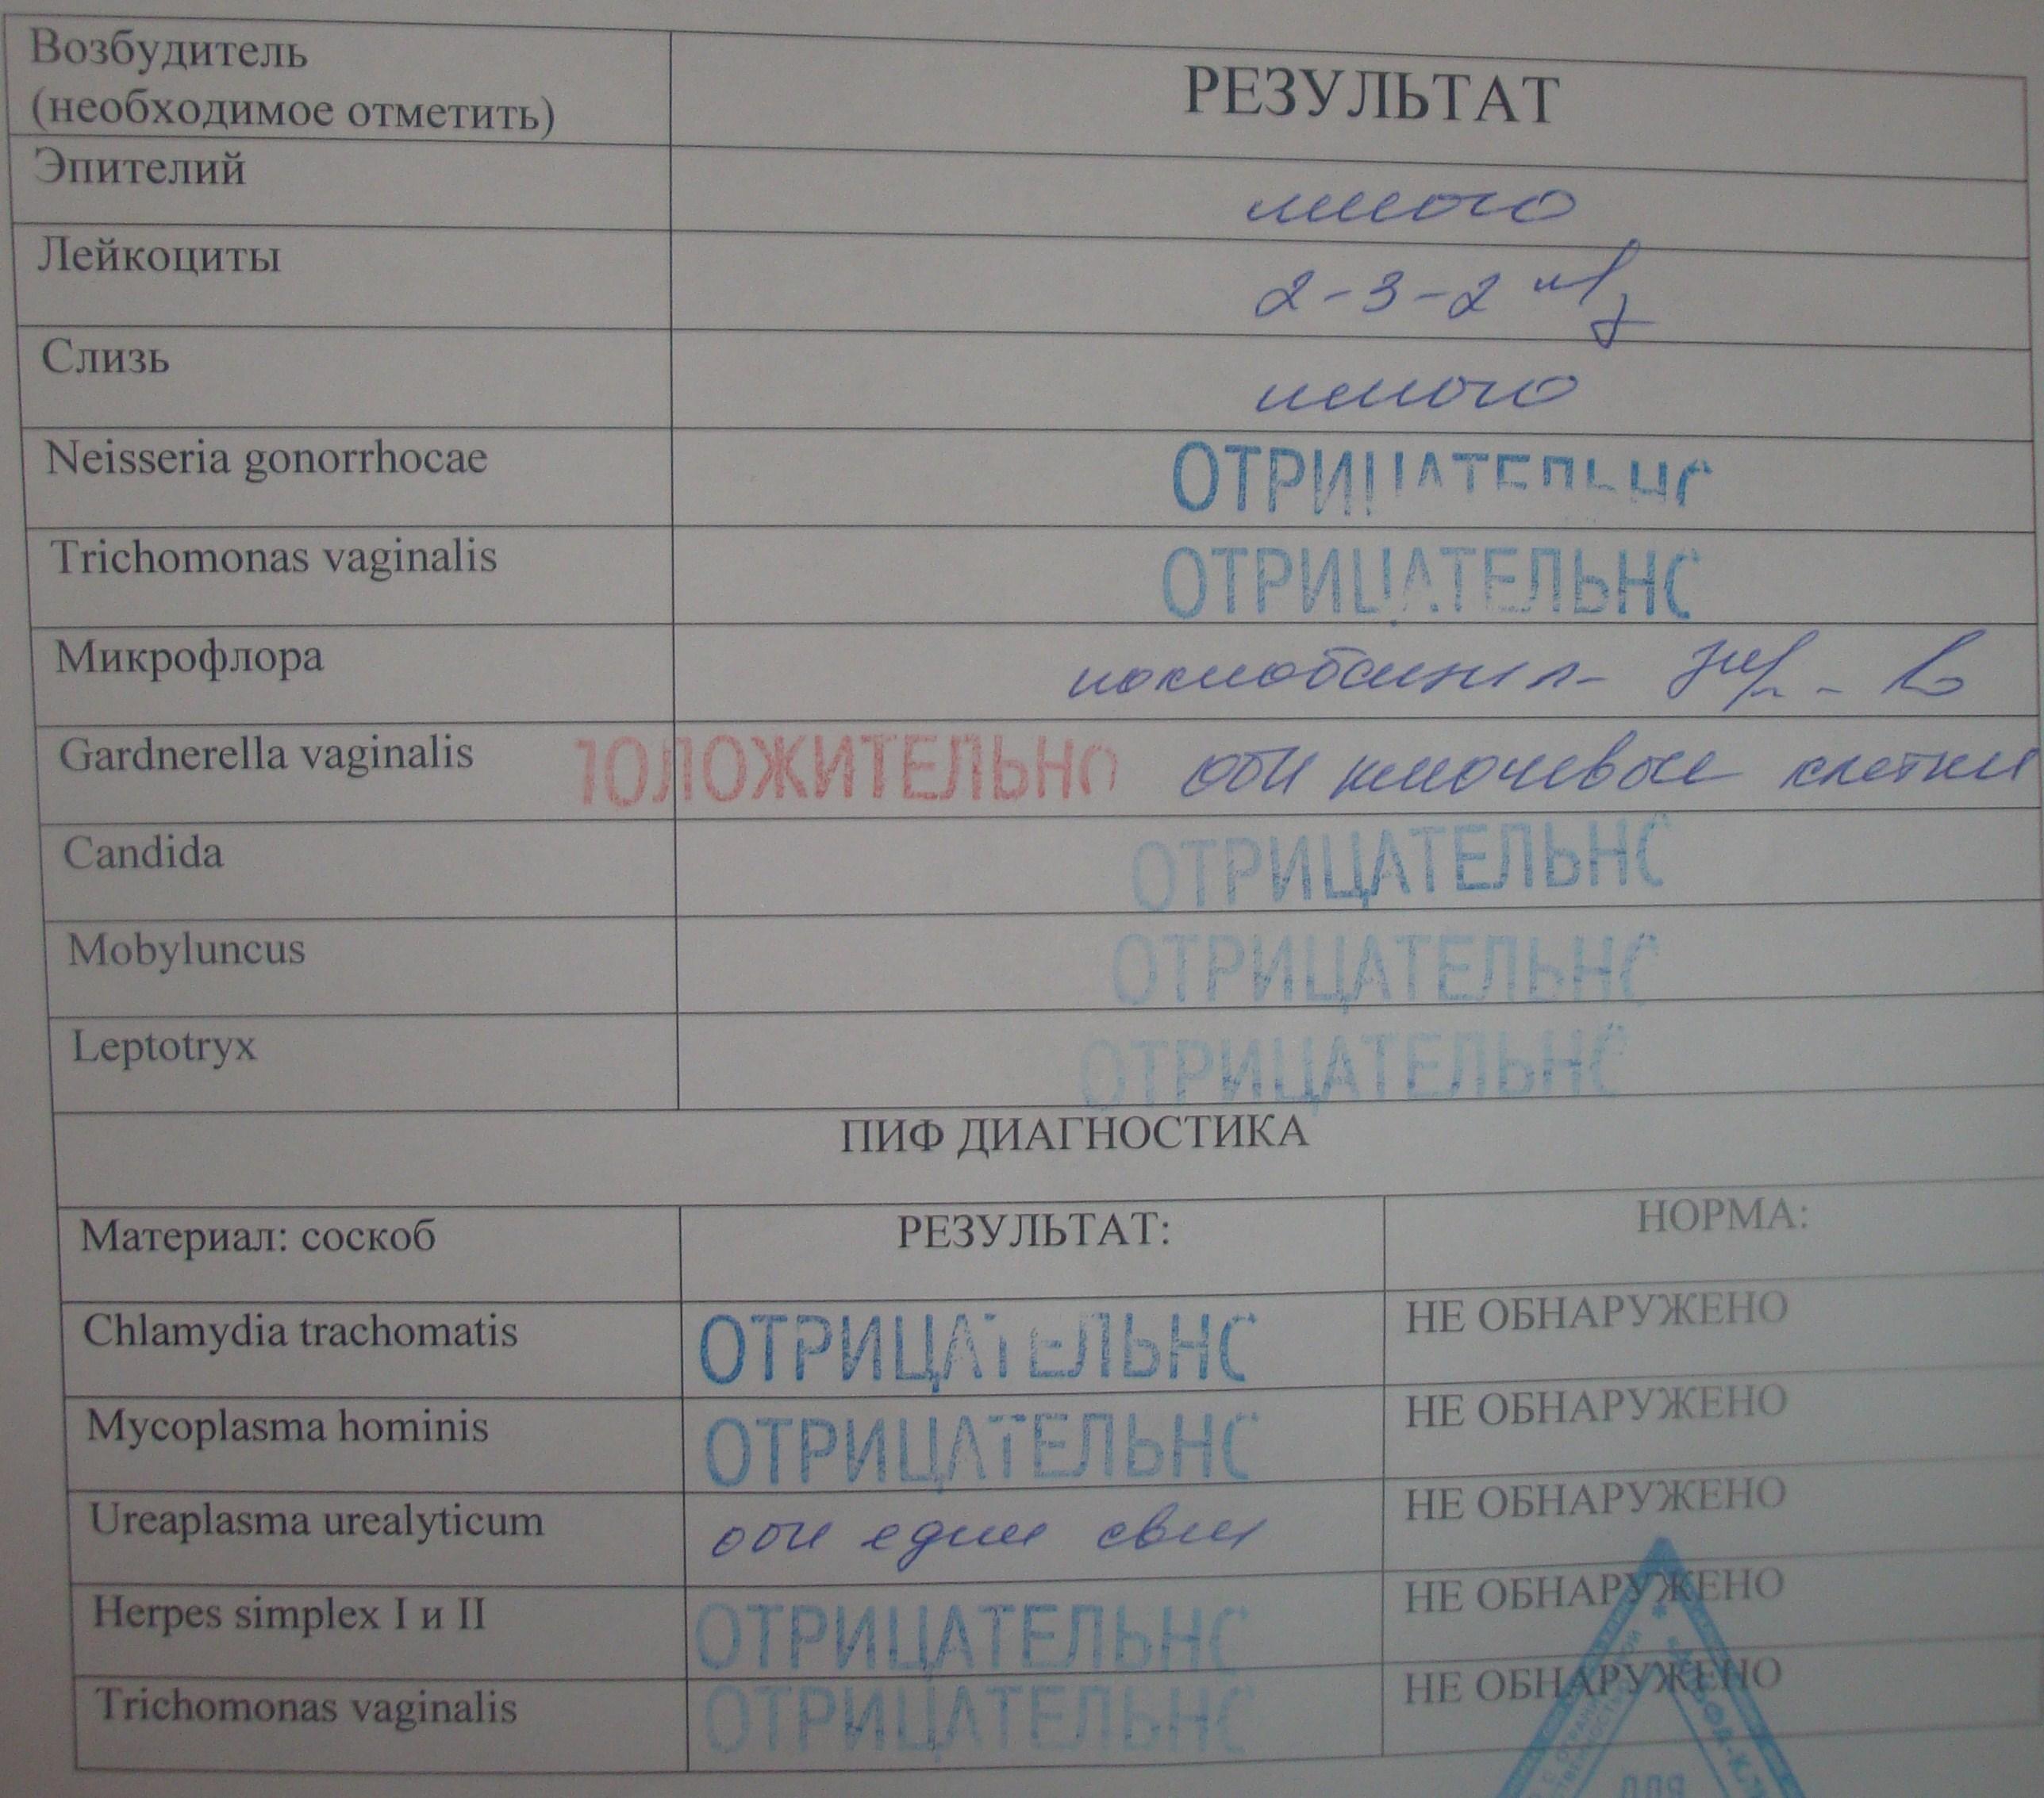 Возбудитель
(необходимое отметить)
РЕЗУЛЬТАТ
Эпителий
много
Лейкоциты
2-3-2
Слизь
много
Neisseria gonorrhocae
ОТРИЦАТЕЛЬНО
Trichomonas vaginalis
ОТРИЦАТЕЛЬНО
Микрофлора
Gardnerella vaginalis
ПОЛОЖИТЕЛЬНО обн ключевые клетки
Candida
ОТРИЦАТЕЛЬНО
Mobyluncus
ОТРИЦАТЕЛЬНО
Leptotryx
ОТРИЦАТЕЛЬНО
ПИФ ДИАГНОСТИКА
Материал: соскоб
РЕЗУЛЬТАТ:
НОРМА:
Chlamydia trachomatis
ОТРИЦАТЕЛЬНО
НЕ ОБНАРУЖЕНО
Mycoplasma hominis
ОТРИЦАТЕЛЬНО
НЕ ОБНАРУЖЕНО
Ureaplasma urealyticum
обн един свеч
НЕ ОБНАРУЖЕНО
Herpes simplex I и II
ОТРИЦАТЕЛЬНО
НЕ ОБНАРУЖЕНО
Trichomonas vaginalis
ОТРИЦАТЕЛЬНО
НЕ ОБНАРУЖЕНО
ДЛЯ